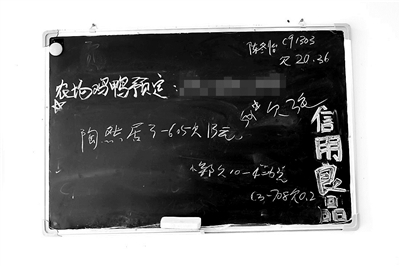 陈冬怡 C91303
欠20.36
农场鸡鸭预定：
欠2元
陶然居3-605欠13元
郑欠10-4=6元
C3-708欠0.2
信用良品